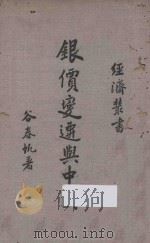 經濟叢書
銀價變遷與中
谷春帆著